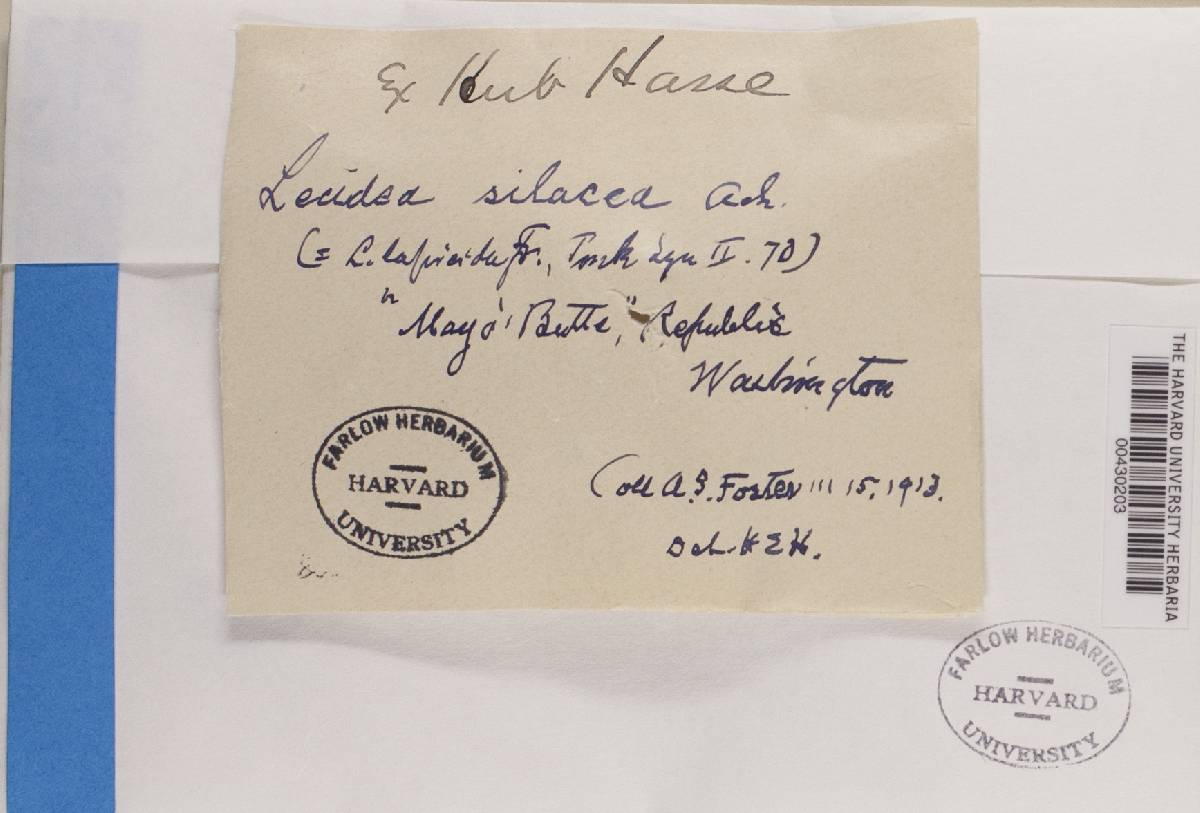 Ex Herb Hasse
Lecidea silacea Ach.
(= L. lapicida Fr., Tuck Lyn II. 70)
"Mayo' Butte," Republic
Washington
FARLOW HERBARIUM
HARVARD
UNIVERSITY
Coll A.S. Foster III 15, 1913.
Det. H E H.
THE HARVARD UNIVERSITY HERBARIA
00430203
FARLOW HERBARIUM
HARVARD
UNIVERSITY